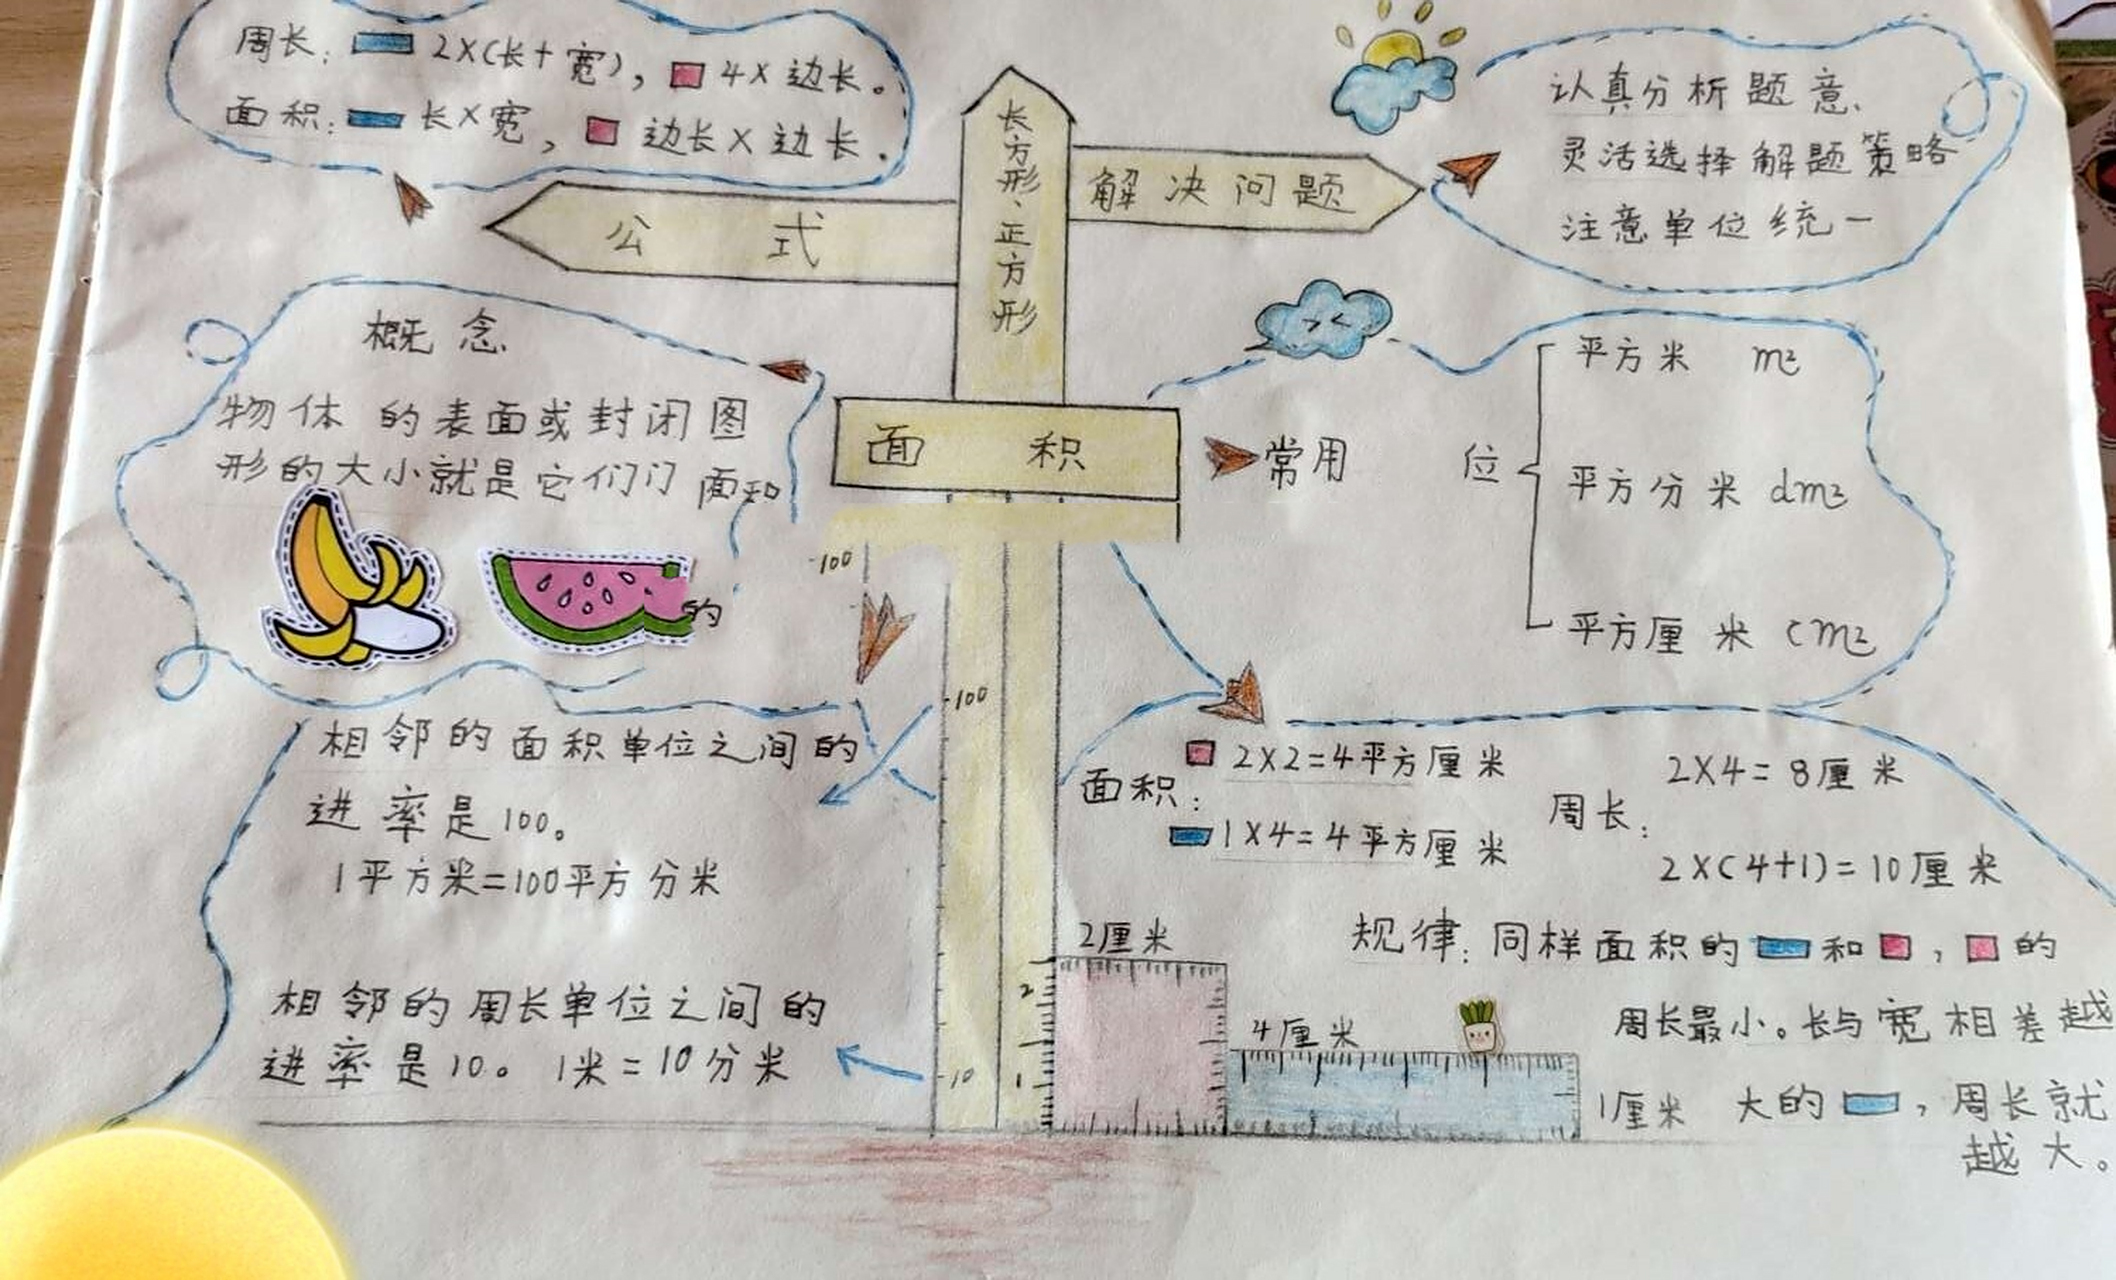 周长: 2×(长+宽), 4×边长。
面积: 长×宽, 边长×边长.
公式
长方形、正方形
解决问题
认真分析题意、
灵活选择解题策略
注意单位统一
概念
物体的表面或封闭图
形的大小就是它们
的
面积
常用
位
平方米 m²
平方分米 dm²
平方厘米 cm²
100
100
相邻的面积单位之间的
进率是100。
1平方米=100平方分米
相邻的周长单位之间的
进率是10。 1米=10分米
10
2
1
面积:
2×2=4平方厘米
1×4=4平方厘米
周长:
2×4=8厘米
2×(4+1)=10厘米
2厘米
4厘米
1厘米
规律:同样面积的 和 , 的
周长最小。长与宽相差越
大的 ,周长就
越大。